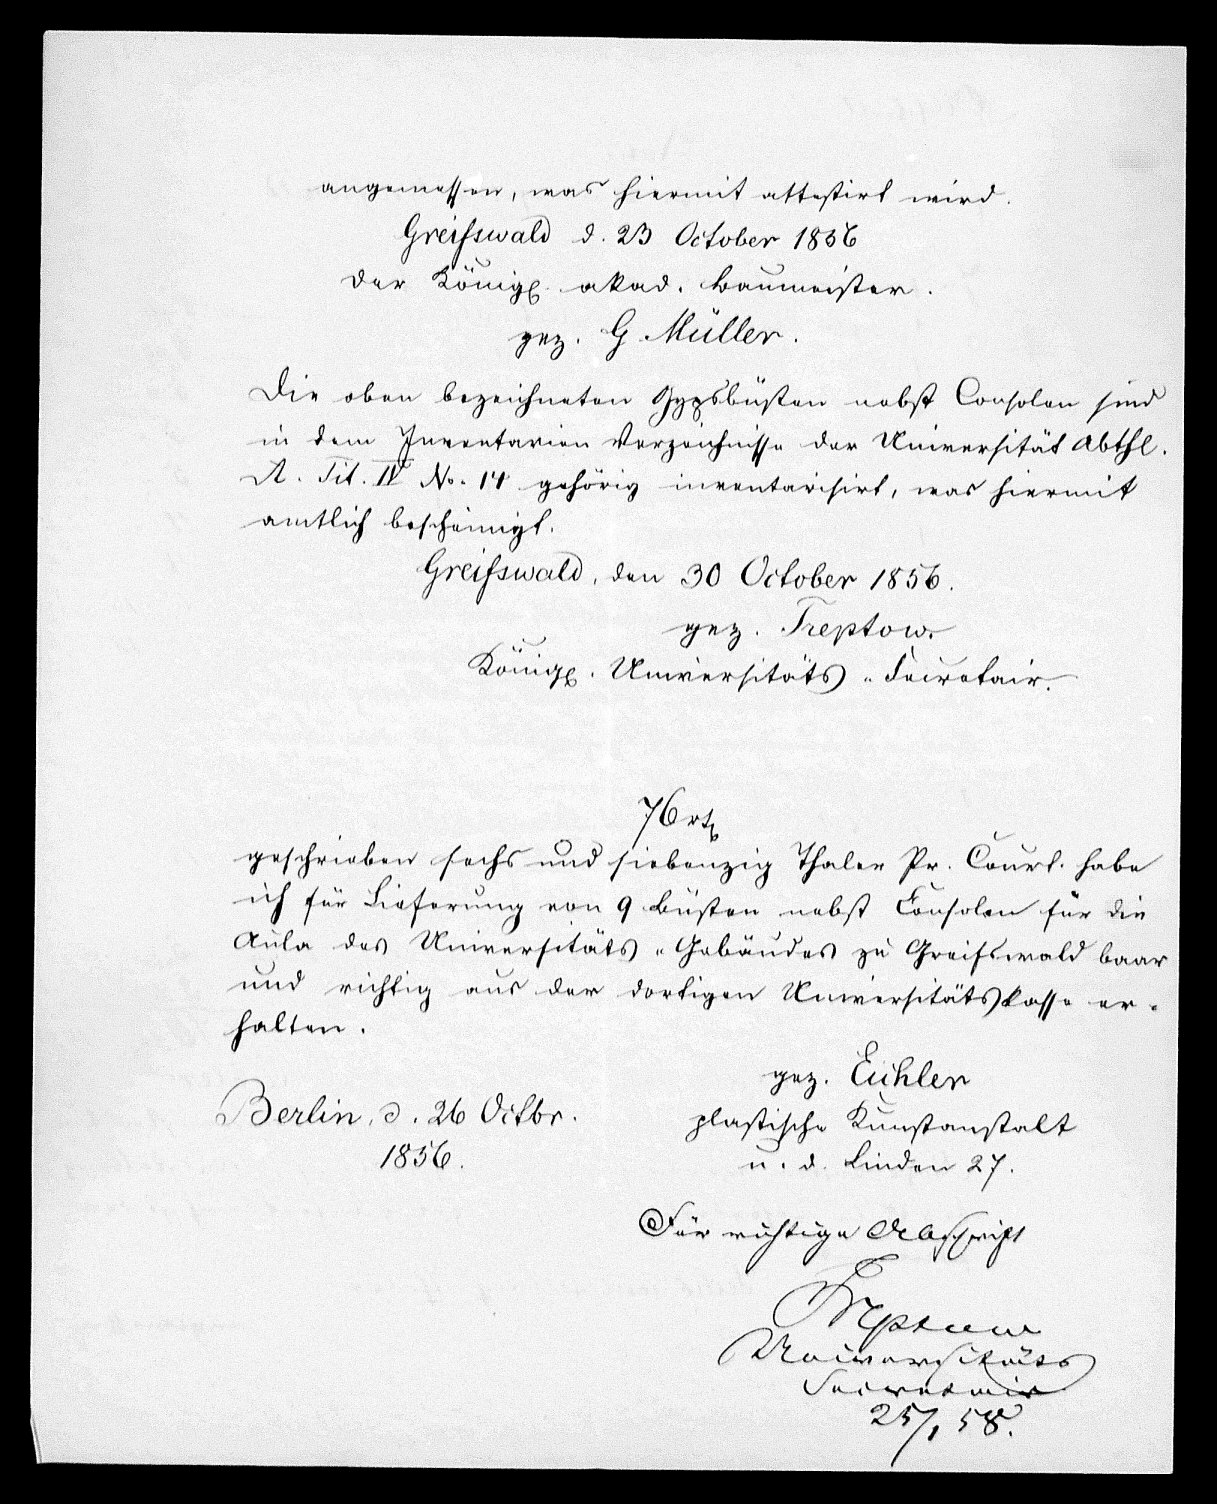 angemessen, was hiermit attestirt wird.
Greifswald d. 23 October 1856
Der Königl. akad. Baumeister.
gez. G. Müller.
Die oben bezeichneten Gypsbüsten nebst Consolen sind
in dem Inventarien Verzeichnisse der Universität Abthl.
A. Tit. IV No. 14 gehörig inventarisirt, was hiermit
amtlich bescheinigt.
Greifswald, den 30 October 1856.
gez. Treptow.
Königl. Universitäts-Secretair.
76 rt
geschrieben sechs und siebenzig Thaler Pr. Court. habe
ich für Lieferung von 9 Büsten nebst Consolen für die
Aula des Universitäts-Gebäudes zu Greifswald baar
und richtig aus der dortigen Universitätskasse er-
halten.
gez. Eichler
Berlin, d. 26 Octbr.
1856.
plastische Kunstanstalt
u. d. Linden 27.
Für richtige Abschrift
Treptow
Universitäts
Secretair
25/1 58.